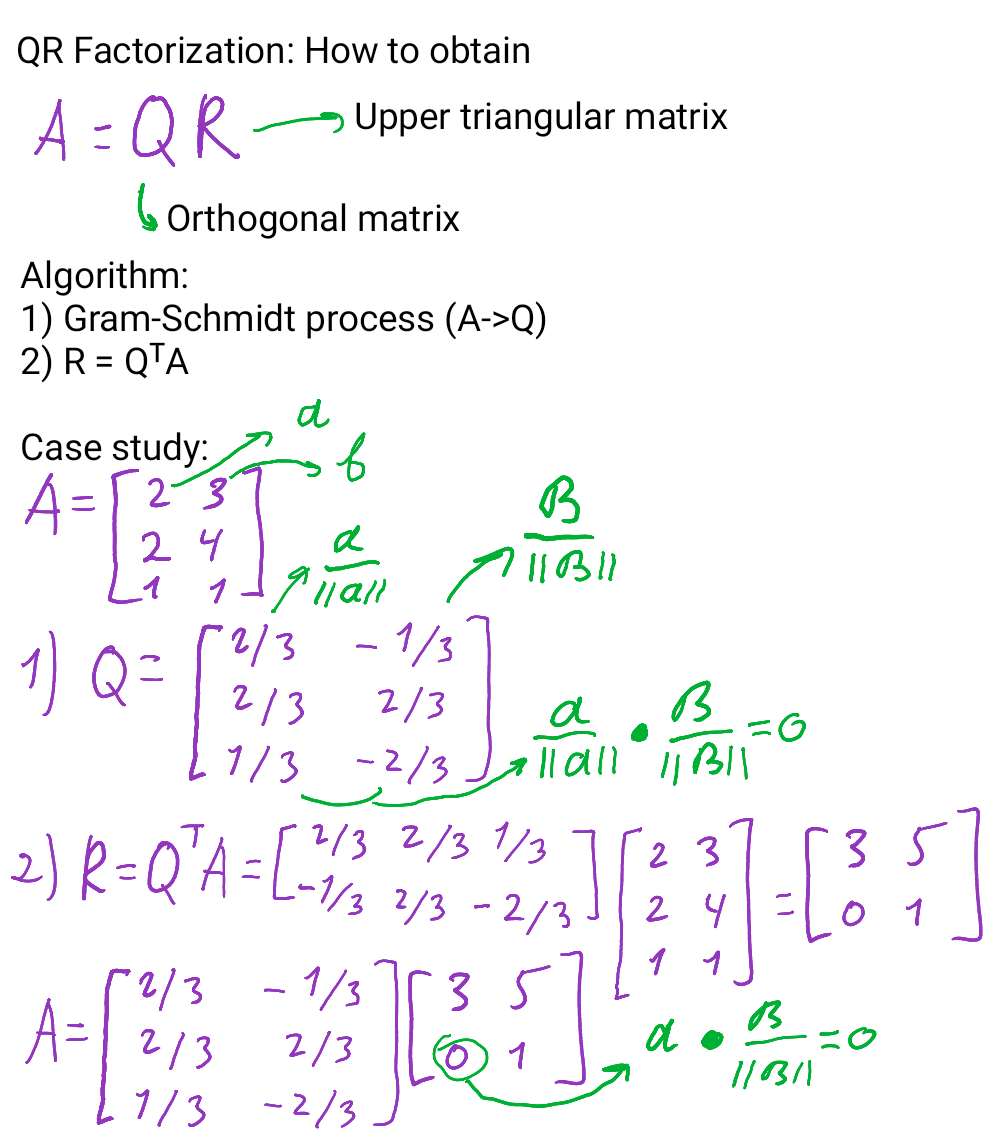 QR Factorization: How to obtain
A = QR → Upper triangular matrix
Orthogonal matrix
Algorithm:
1) Gram-Schmidt process (A->Q)
2) R = QᵀA
Case study:
a
b
A = [ 2 3
2 4
1 1 ]
a / ||a||
B / ||B||
1) Q = [ 2/3 - 1/3
2/3 2/3
1/3 -2/3 ]
a / ||a|| • B / ||B|| = 0
2) R = QᵀA = [ 2/3 2/3 1/3
-1/3 2/3 -2/3 ] [ 2 3
2 4
1 1 ] = [ 3 5
0 1 ]
A = [ 2/3 - 1/3
2/3 2/3
1/3 -2/3 ] [ 3 5
0 1 ]
a • B / ||B|| = 0